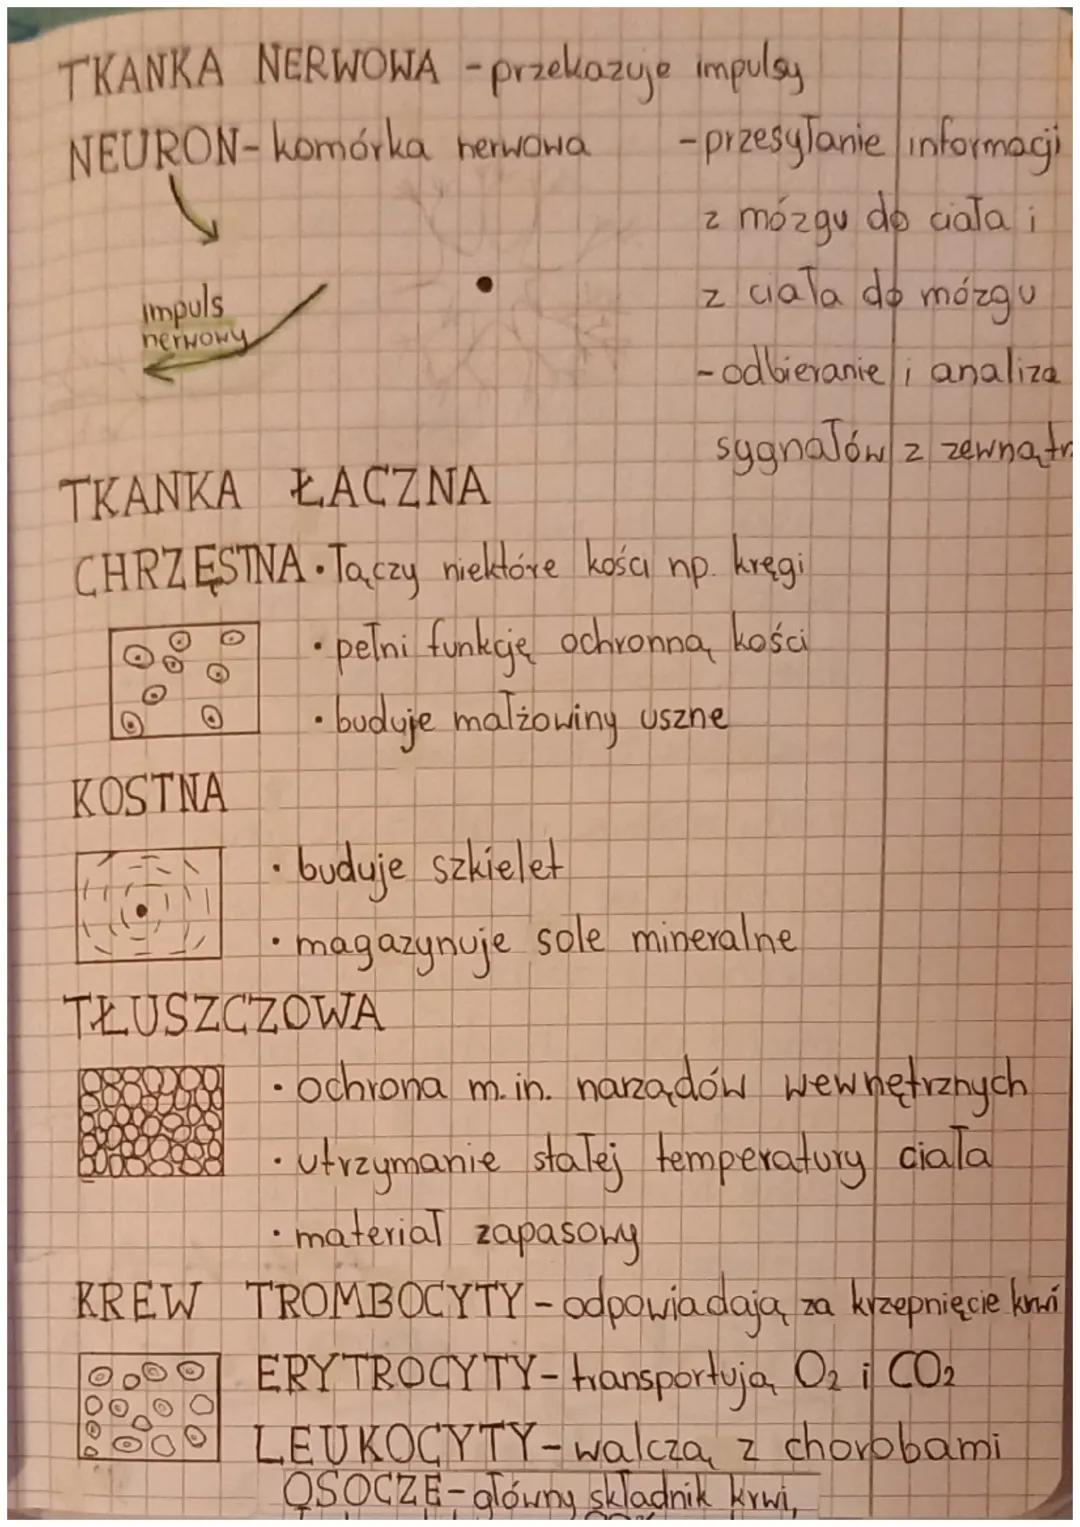 TKANKA NERWOWA - przekazuje impulsy
NEURON - komórka nerwowa
- przesyłanie informacji
z mózgu do ciała i
z ciała do mózgu
- odbieranie i analiza
sygnałów z zewnątr
impuls
nerwowy
TKANKA ŁACZNA
CHRZĘSTNA • łączy niektóre kości np. kręgi
• pełni funkcję ochronną kości
• buduje małżowiny uszne
KOSTNA
• buduje szkielet
• magazynuje sole mineralne
TŁUSZCZOWA
• ochrona m.in. narządów wewnętrznych
• utrzymanie stałej temperatury ciała
• materiał zapasowy
KREW TROMBOCYTY - odpowiadają za krzepnięcie krwi
ERYTROCYTY - transportują O₂ i CO₂
LEUKOCYTY - walczą z chorobami
OSOCZE - główny składnik krwi,